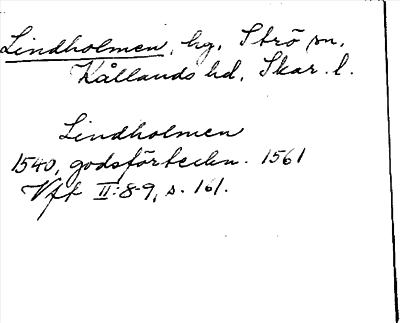 Lindholmen, hg, Strö sn,
Kållands hd, Skar. l.
Lindholmen
1540, godsförteckn. 1561
Vft II:8-9, s. 161.